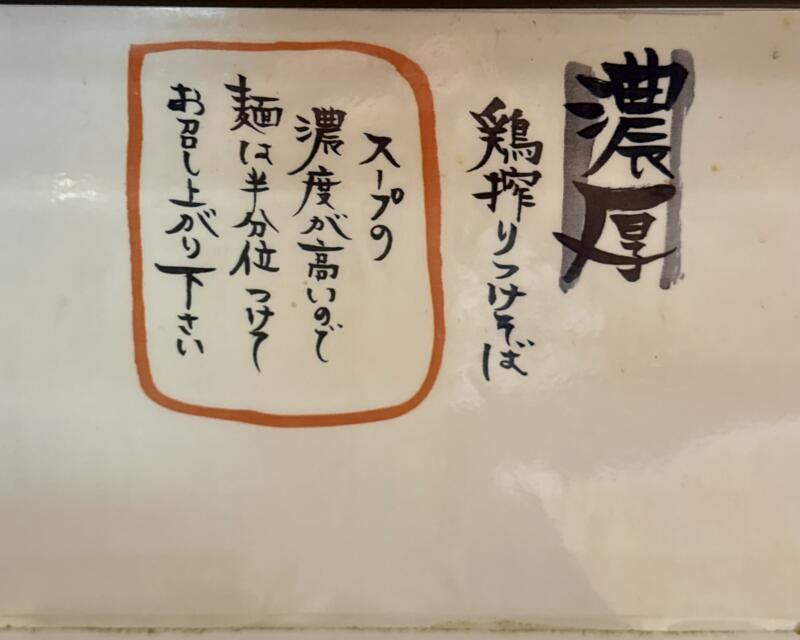 濃厚
鶏搾りつけそば
スープの
濃度が高いので
麺は半分位つけて
お召し上がり下さい